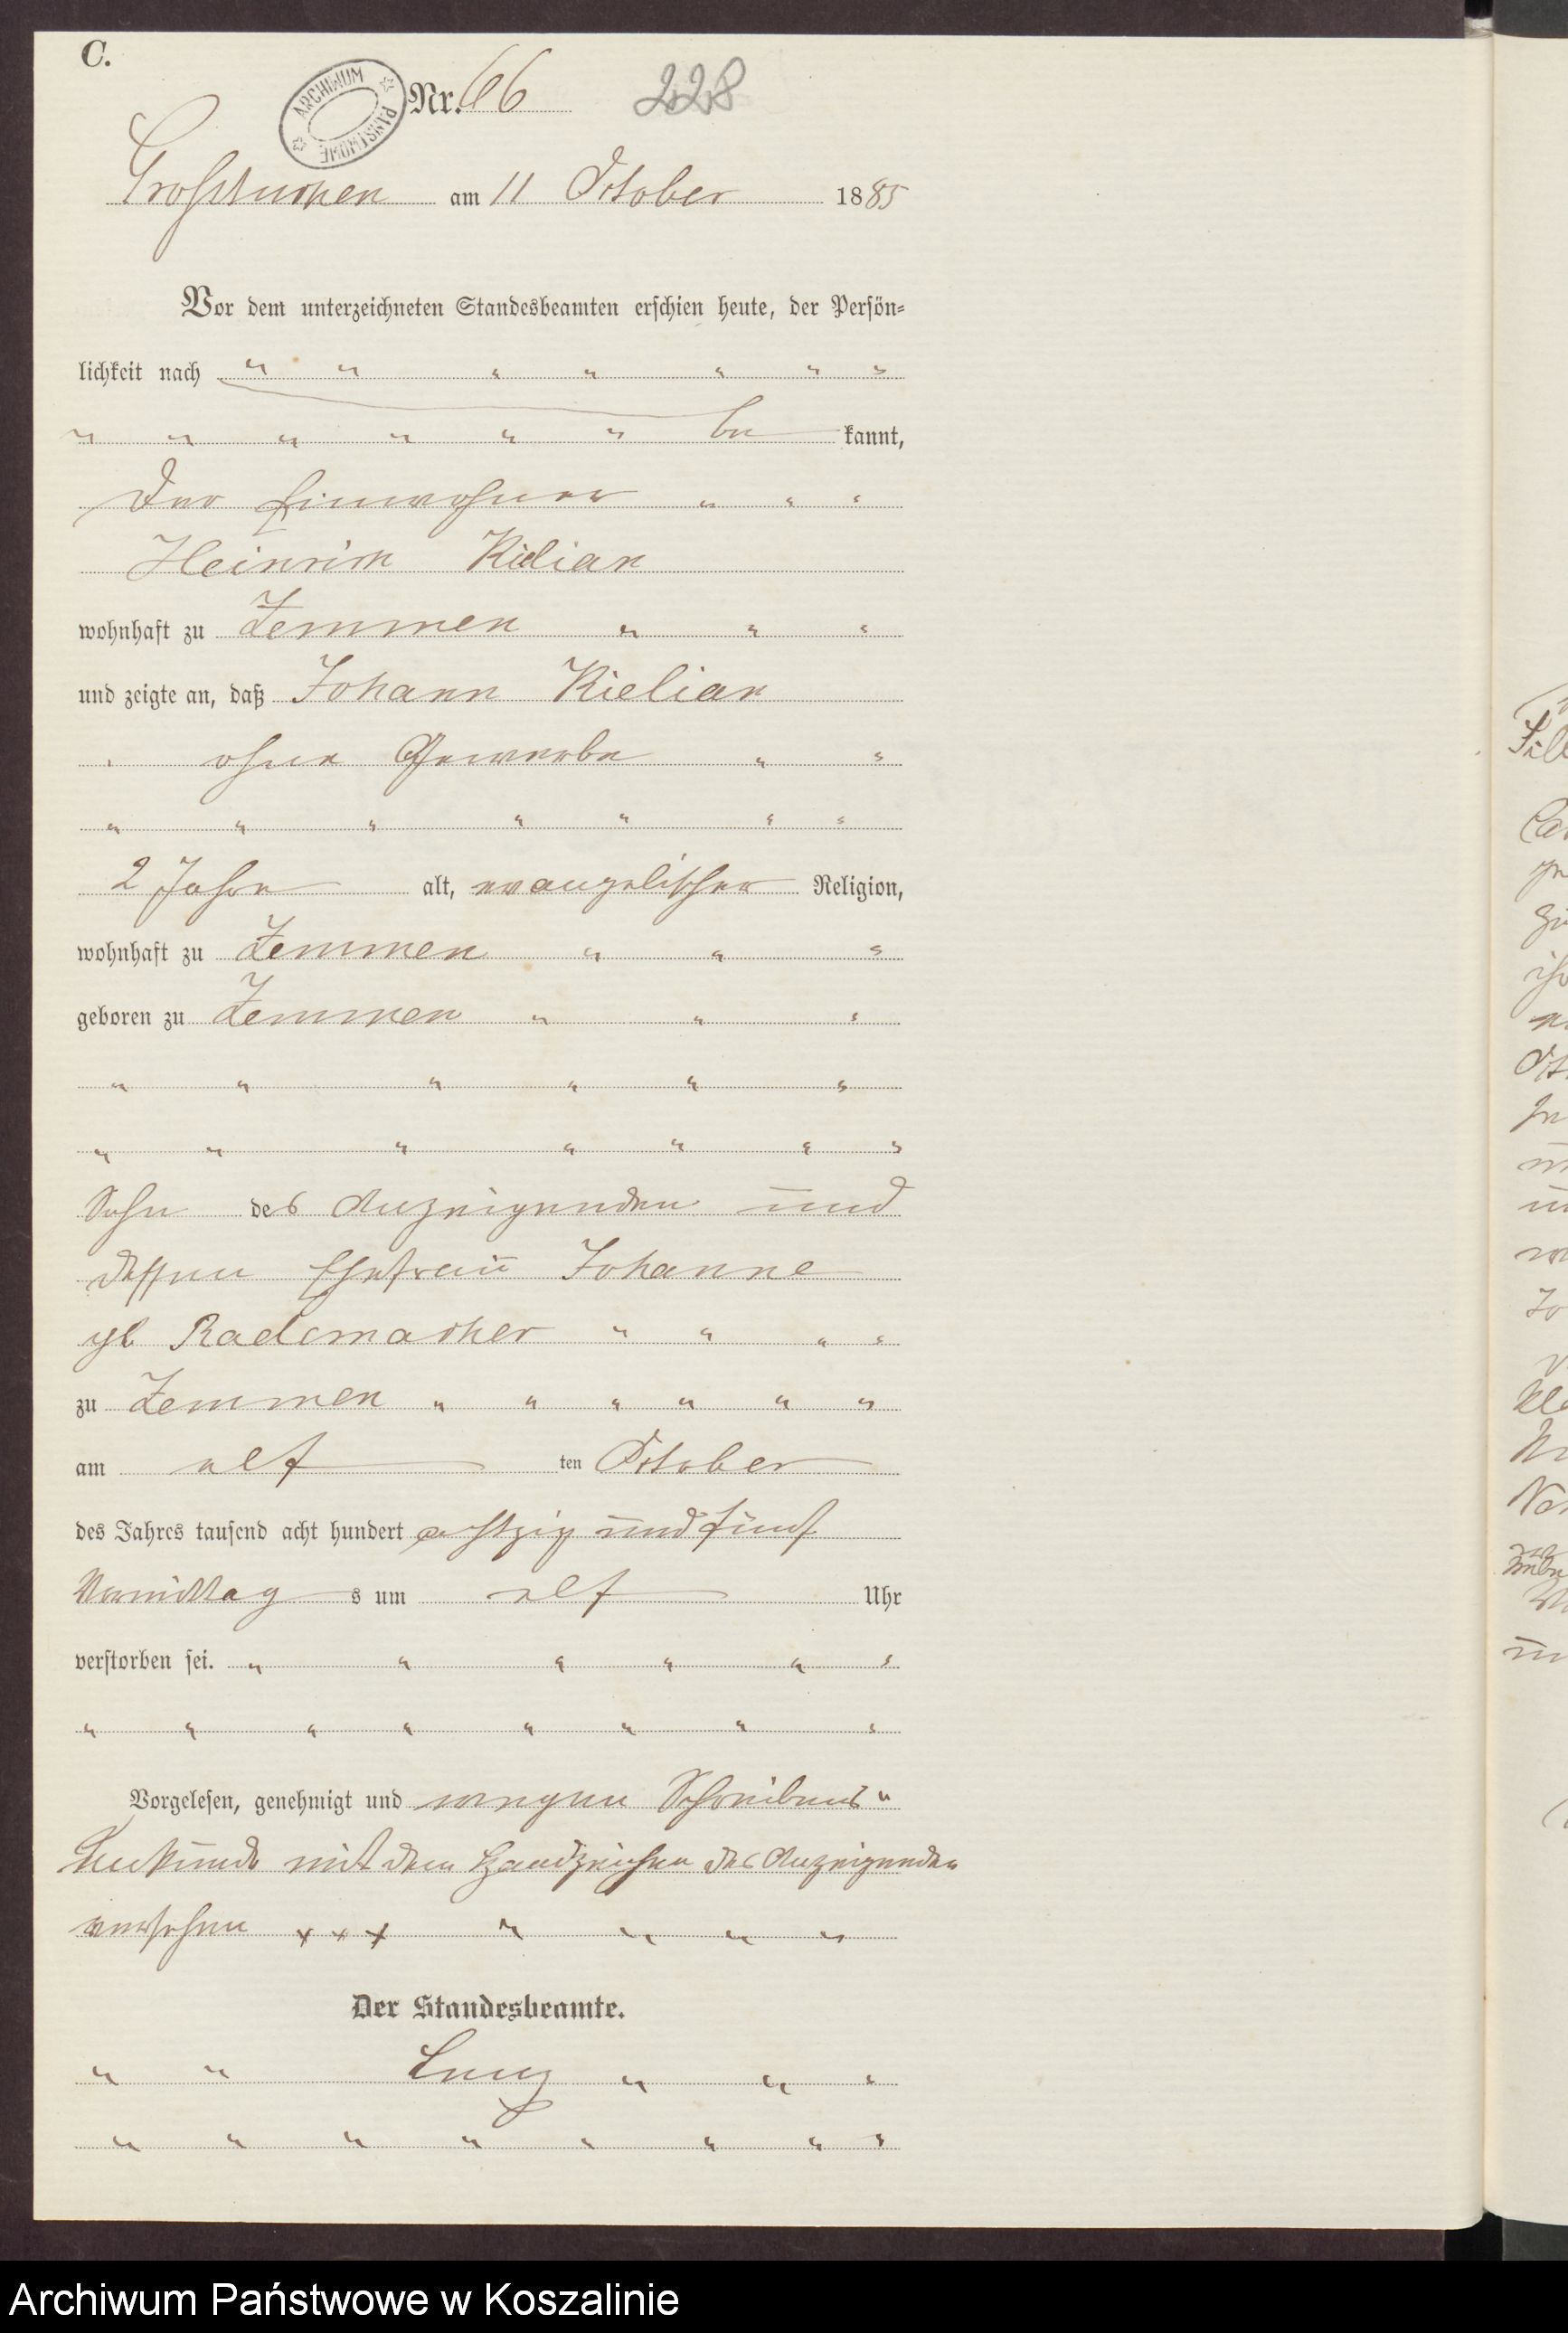 C.
ARCHIWUM PAŃSTWOWE
Nr. 66 228
Großtuchen am 11 October 1885
Vor dem unterzeichneten Standesbeamten erschien heute, der Persön-
lichkeit nach " " " " " " "
" " " " " " be kannt,
der Einwohner " " "
Heinrich Kielian
wohnhaft zu Zemmen " " "
und zeigte an, daß Johann Kielian
" ohne Gewerbe " "
" " " " " " "
2 Jahre alt, evangelischer Religion,
wohnhaft zu Zemmen " " "
geboren zu Zemmen " " "
" " " " " "
" " " " " " "
Sohn des Anzeigenden und
dessen Ehefrau Johanne
gb Rademacher " " " "
zu Zemmen " " " " " "
am elf ten October
des Jahres tausend acht hundert achtzig und fünf
Vormittag s um elf Uhr
verstorben sei. " " " " " "
" " " " " " " "
Vorgelesen, genehmigt und wegen Schreibens "
Unkunde mit dem Handzeichen des Anzeigenden
versehen + + + " " " "
Der Standesbeamte.
" " Lenz " " "
" " " " " " " "
Archiwum Państwowe w Koszalinie